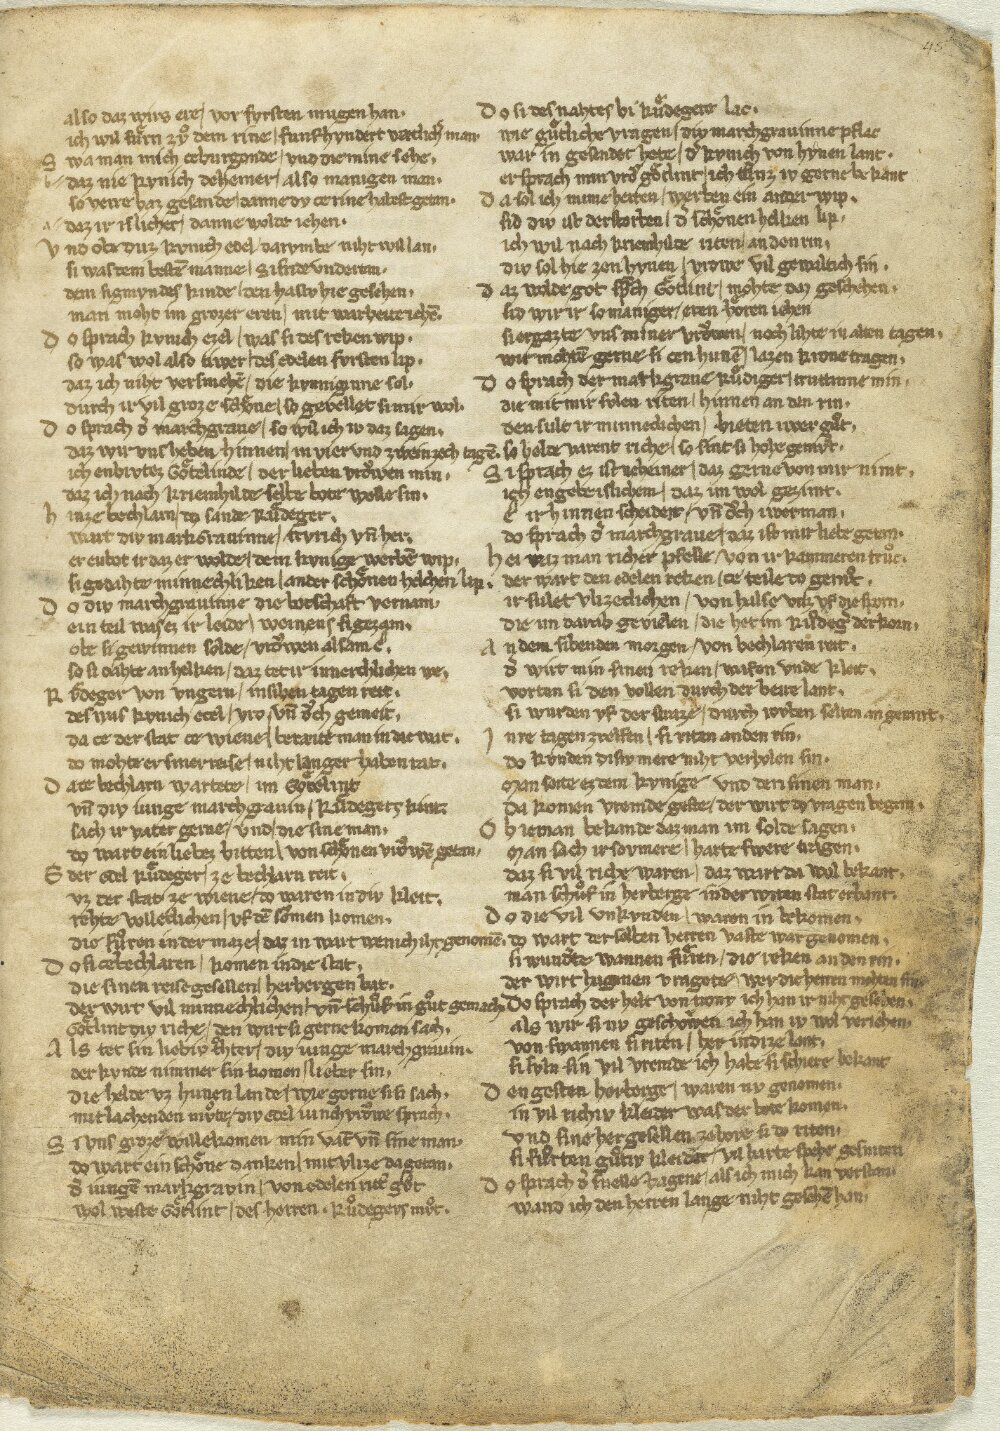 45
also daz wirs ere / vor fyrsten mugen han.
ich wil fuͤrn zvͦ dem rine / funfhvndert wetlicħ man.
S wa man mich ceburgonde / vnd die mine sehe.
daz nie kvnich deheiner / also manigen man.
so verre baz gesande / danne dv ce rine habest getan.
daz ir islicher / danne wolde iehen.
V nd obe duz kvnich edel / darvmbe niht wil lan.
si was dem besten manne / Sifride vndertan.
dem sigmvndes kinde / den hastv hie gesehen.
man moht im grozer eren / mit warheite iehen.
D o sprach kvnich ezel / was si des reken wip.
so was wol also tiwer / des edelen fvrsten lip.
daz ich niht versmehen / die kvniginne sol.
durch ir vil groze schoͤne / so gevellet si mir wol.
D o sprach dˢ marchgraue / so wil ich iv daz sagen.
daz wir vns heben hinnen / in vier vnd zweinzech tagen.
ich enbivtez Goͤtelinde / der lieben vroͮwen min.
daz ich nach kriemhilde / selbe bote welle sin.
h inze bechlarn / do sande Ruͤdeger.
wart div markgrauinne / trvrich vn̄ her.
er enbot ir daz er wolde / dem kvnige werben wip.
si gedahte minnechliken / an der schoͤnen helchen lip.
D o div marchgrauinne die botschaft vernam.
ein teil was ez ir leide / weinens si gezam.
obe si gewinnen solde / vroͮwen alsam e.
so si dahte an helken / daz tet ir innerchlichen we.
R vͦdeger von vngern / in siben tagen reit.
des was kvnich etcel / vro / vn̄ oͮch gemeit.
da ce der stat ce wiene / bereite man in die wat.
do mohte er siner reise / niht langer haben rat.
D a ce bechlarn wartete / im Goͤtelint
vn̄ div iunge marchgrauin / Ruͤdegers kint
sach ir vater gerne / vnd / die sine man.
do wart ein liebez bitten / von schoͤnen vroͮwen getan.
E der edel Ruͤdeger / ze bechlarn reit.
vz der stat ze wiene / do waren in div kleit.
rehte volleclichen / vf den soͮmen komen.
die fuͤren in der maze / daz in wart wenich iht genomen.
D o si ce bechlaren / komen in die stat.
die sinen reise gesellen / herbergen bat.
der wirt vil minnechlichen / vn̄ schuͦf in guͦt gemach
Goͤtlint div riche / den wirt si gerne komen sach.
A ls tet sin liebiv tohter / div iunge marchgrauin.
der kvnde nimmer sin komen / lieber sin.
die helde vz hunen lande / wie gerne si si sach.
mit lachenden mvͦte / div edel iunchvroͮwe sprach.
S i vns groze willekomen min vater vn̄ sine man.
do wart ein schoͤne danken / mit vlize da getan.
dˢ iungen markgravin / von edelen riter guͦt
wol weste Goͤtlint / des herren Ruͦdegers mvͦt.
D o si des nahtes bi Ruͤdegere lac.
wie guͤtliche vragen / div marchgrauinne pflac
war in gesendet hete / dˢ kvnich von hvnen lant.
er sprach min vroͮ goͤtlint / ich tuͦnz iv gerne bekant
D a sol ich mime herren / werben ein ander wip.
sid div ist verstorben / dˢ schoͤnen helken lip.
ich wil nach kriemhilte riten / an den rin.
div sol hie zen hvnen / vrowe vil gewaltich sin.
D az wolde got sprach Goͤtlint / mohte daz geschehen.
sid wir ir so maniger / eren hoͤren iehen
si ergazte vns miner vroͮwen / noch lihte in alten tagen.
wir mohten gerne si cen hunen / lazen krone tragen.
D o sprach der markgraue Ruͤdiger / trutinne min.
die mit mir svlen riten / hinnen an den rin.
den sult ir minnechlichen / bieten iwer guͦt.
so helde varent riche / so sint si hohe gemvͦt.
S i sprach ez ist deheiner / daz gerne von mir nimt.
ich engebe islichem / daz im wol gezimt.
e ir hinnen scheidet / vn̄ oͮch iwer man.
do sprach dˢ marchgraue / daz ist mir liebe getan.
h ei waz man richer pfelle / von ir kamneren truͦc.
der wart den edelen reken / ce teile do genuͦc.
ir fullet vlizeclichen / von halse vnz vf die sporn.
die im darab gevielen / die het im Ruͦdeger derkorn.
A n dem sibenden morgen / von bechlaren reit.
dˢ wirt mit sinen reken / wafen vnde kleit.
vorten si den vollen durch der beire lant.
si wurden vf der straze / durch rovben selten an gerant.
I nre tagen zwelfen / si riten an den rin.
do kvnden disiv mere niht verholen sin.
man seite ez dem kvnige vnd den sinen man.
Da komen vremde geste / der wirt do vragen began.
O b ieman bekande daz man im solde sagen.
man sach ir sovmere / harte swere tragen.
daz si vil riche waren / daz wart da wol bekant.
man schuͦf in herberge in der witen stat cehant.
D o die vil vnkvnden / waren in bekomen.
do wart der selben herren vaste war genomen.
si wunderte wannen fuͤren / die reken an den rin.
der wirt hagenen vragete / wer die herren mohten sin
Do sprach der helt von trony ich han ir niht gesehen.
als wir si nv geschoͮwen ich han iv wol veriehen.
von swannen si riten / her in dize lant.
si svln sin vil vremde ich habe si schiere bekant
D en gesten herberge / waren nv genomen.
in vil richiv kleider was der bote komen.
vnd sine hergesellen ze hove si do riten.
si fuͦrten guͤtiv kleider / vil harte spehe gesniten
D o sprach dˢ snelle hagene / als ich mich kan verstan.
wand ich den herren lange niht gesehen han.